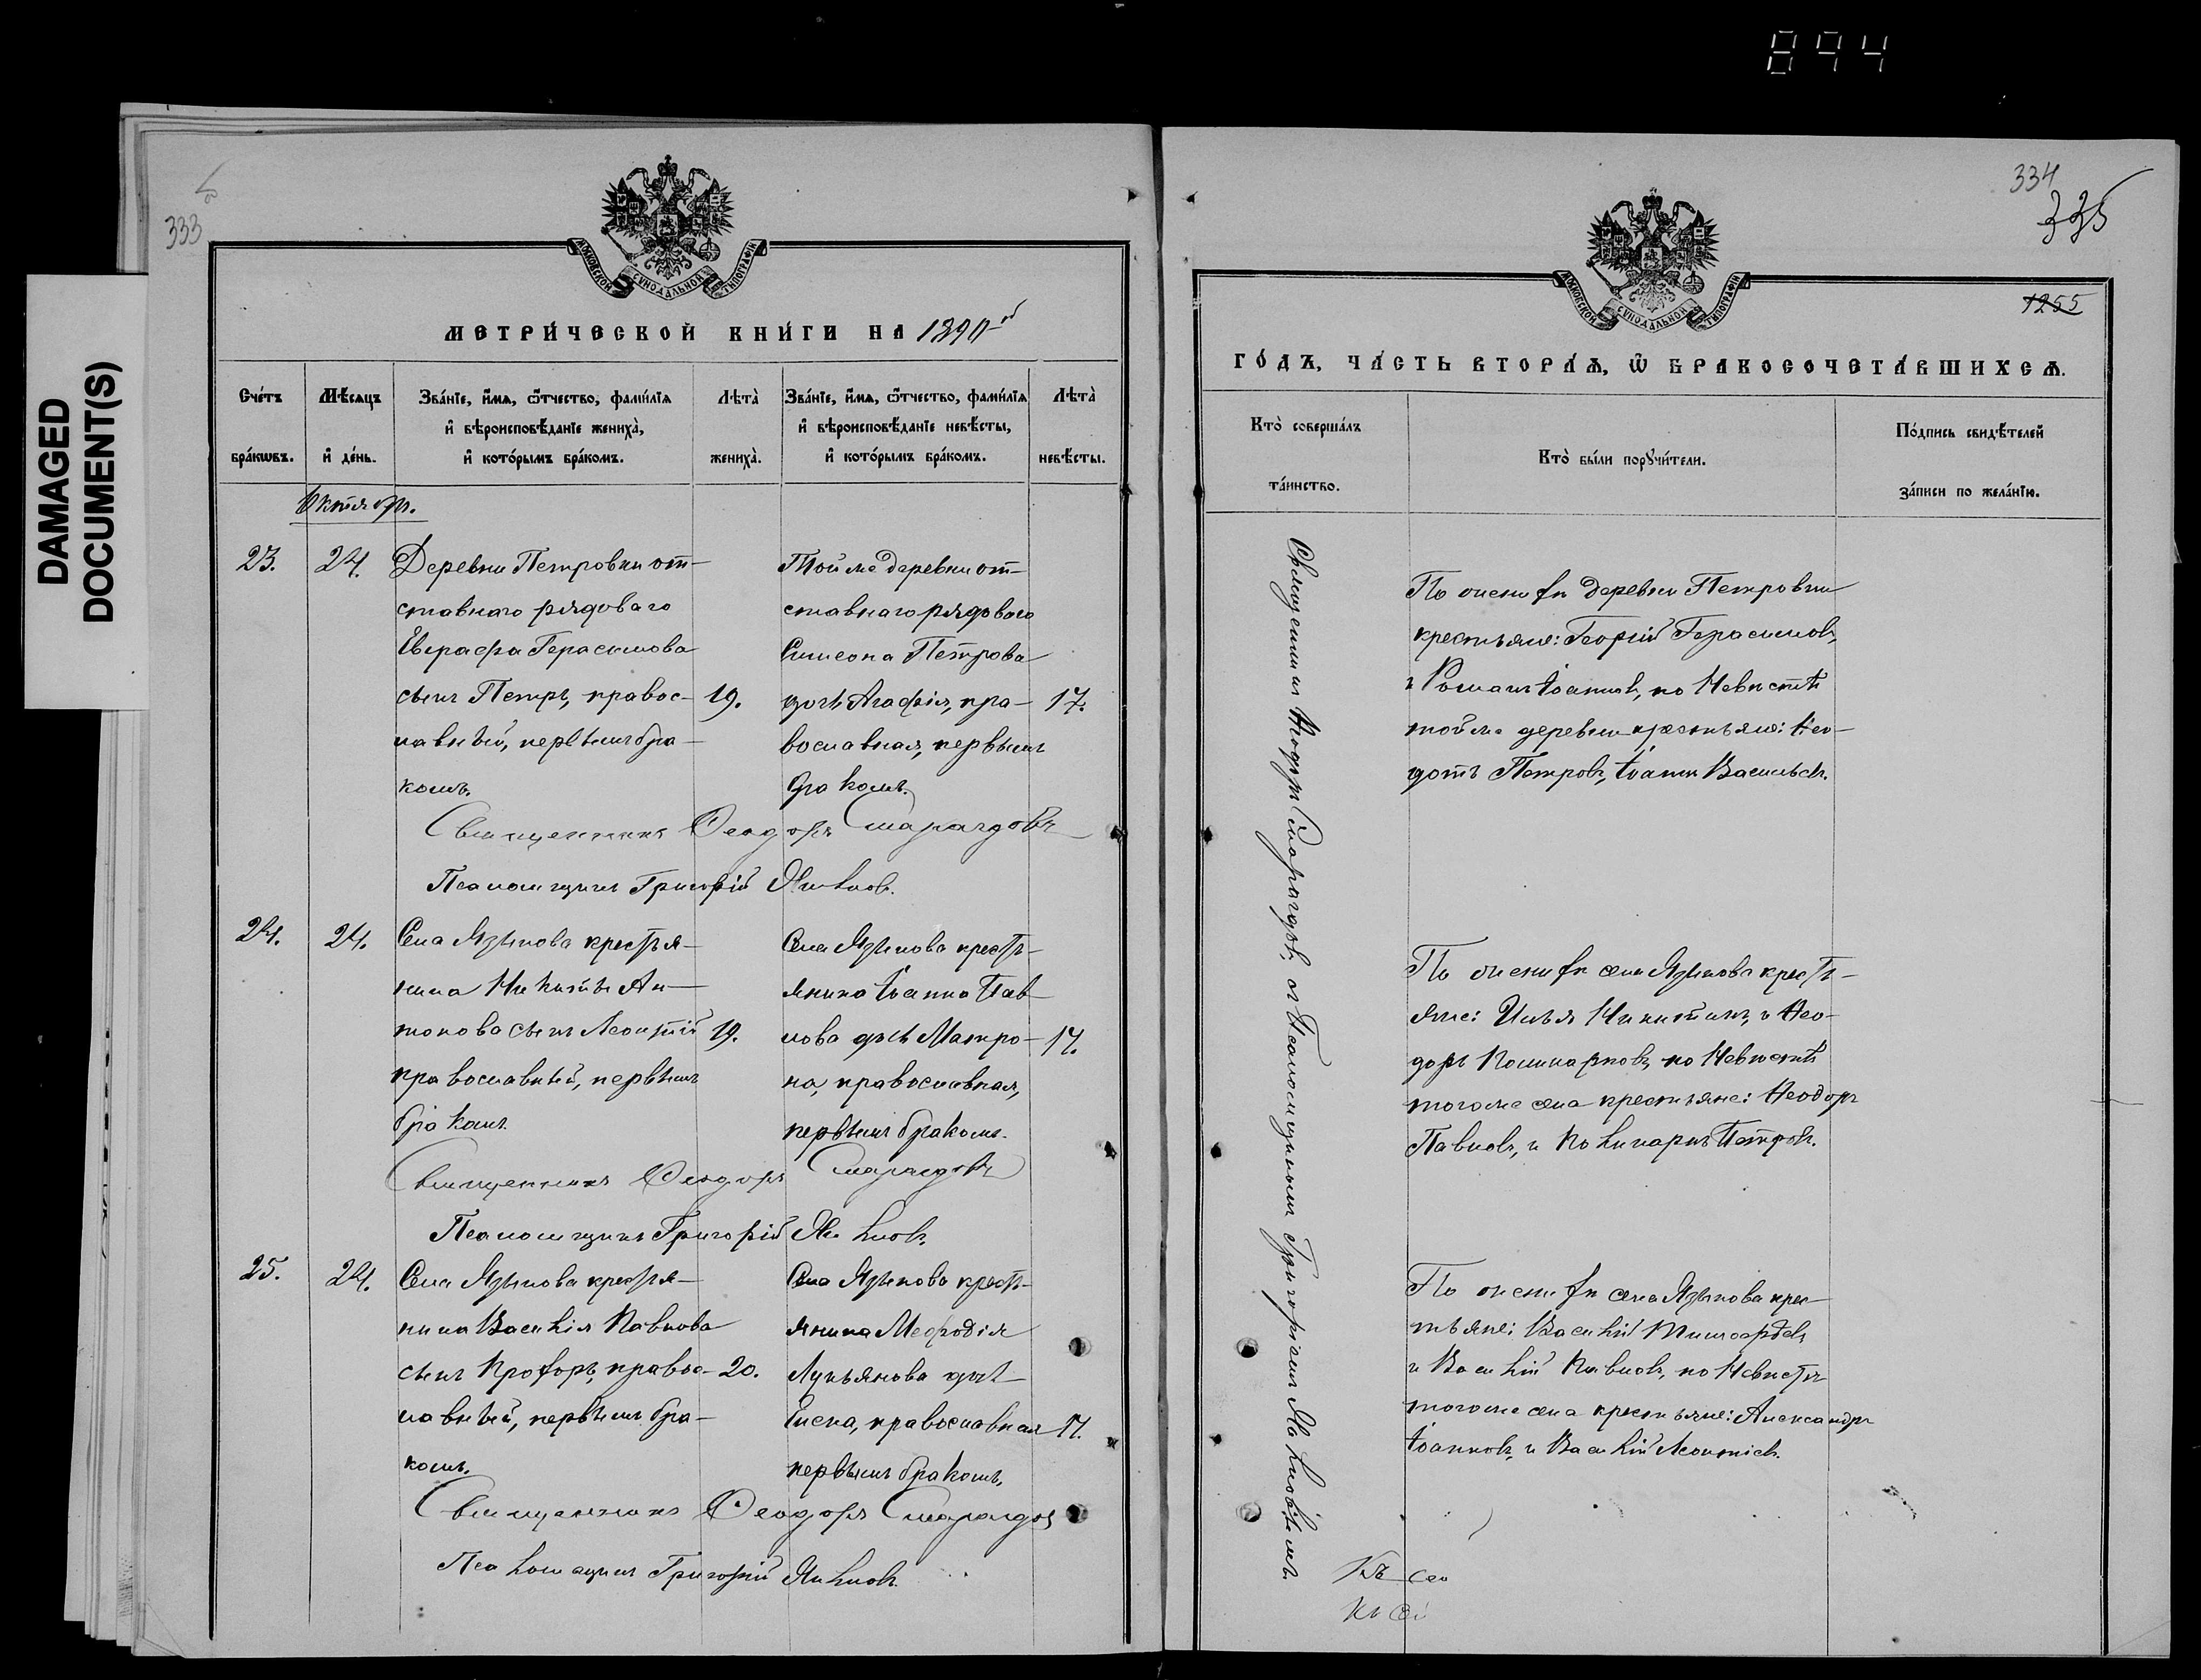 894
DAMAGED
DOCUMENT(S)
333
МОСКОВСКОЙ СѴНОДАЛЬНОЙ ТИПОГРАФІИ
МЕТРИ́ЧЕСКОЙ КНИ́ГИ НА 1890-й
Сче́тъ бра́кѡвъ.
Мѣ́сяцъ и҆ де́нь.
Зва́нїе, и҆́мѧ, ѻ҆́тчество, фами́лїѧ
и҆ вѣроисповѣ́данїе жениха̀,
и҆ кото́рымъ бра́комъ.
Лѣта̀ жениха̀.
Зва́нїе, и҆́мѧ, ѻ҆́тчество, фами́лїѧ
и҆ вѣроисповѣ́данїе невѣ́сты,
и҆ кото́рымъ бра́комъ.
Лѣта̀ невѣ́сты.
Октябрь.
23.
24.
Деревни Петровки от-
ставнаго рядоваго
Евграфа Герасимова
сынъ Петръ, правос-
лавный, первымъ бра-
комъ.
19.
Тойже деревни от-
ставнаго рядоваго
Симеона Петрова
дочь Агафія, пра-
вославная, первымъ
бракомъ.
17.
Священникъ Ѳеодоръ Смарагдовъ
Псаломщикъ Григорій
24.
24.
Села Языкова крестья-
нина Никиты Ан-
тонова сынъ Леонтій
православный, первымъ
бракомъ.
19.
Села Языкова кресть-
янина Іоанна Пав-
лова дочь Матро-
на, православная,
первымъ бракомъ.
17.
Священникъ Ѳеодоръ Смарагдовъ
Псаломщикъ Григорій
25.
24.
Села Языкова крестья-
нина Василія Павлова
сынъ Прохоръ, правос-
лавный, первымъ бра-
комъ.
20.
Села Языкова кресть-
янина Меѳодія
Лукьянова дочь
Елена, православная
первымъ бракомъ.
17.
Священникъ Ѳеодоръ Смарагдов
Псаломщикъ Григорій
334
335
1255
МОСКОВСКОЙ СѴНОДАЛЬНОЙ ТИПОГРАФІИ
ГО́ДЪ, ЧА́СТЬ ВТОРА́Ѧ, Ѽ БРАКОСОЧЕТА́ВШИХСѦ.
Кто̀ соверша́лъ
та́инство.
Кто̀ бы́ли порꙋчи́тели.
По́дпись свидѣ́телей
за́писи по жела́нїю.
Священникъ Ѳеодоръ Смарагдовъ, съ Псаломщикомъ Григоріемъ
По женихѣ деревни Петровки
крестьяне: Георгій Герасимовъ,
и Романъ Іоанновъ, по Невѣстѣ
тойже деревни крестьяне: Ѳео-
дотъ Петровъ, Іоаннъ Васильевъ.
По женихѣ села Языкова кресть-
яне: Илья Никитинъ, и Ѳео-
доръ Поликарповъ, по Невѣстѣ
тогоже села крестьяне: Ѳеодоръ
Павловъ, и Поликарпъ Петровъ.
По женихѣ села Языкова крес-
тьяне: Василій
и Василій Павловъ, по Невѣстѣ
тогоже села крестьяне: Александръ
Іоанновъ, и Василій Леонтіевъ.